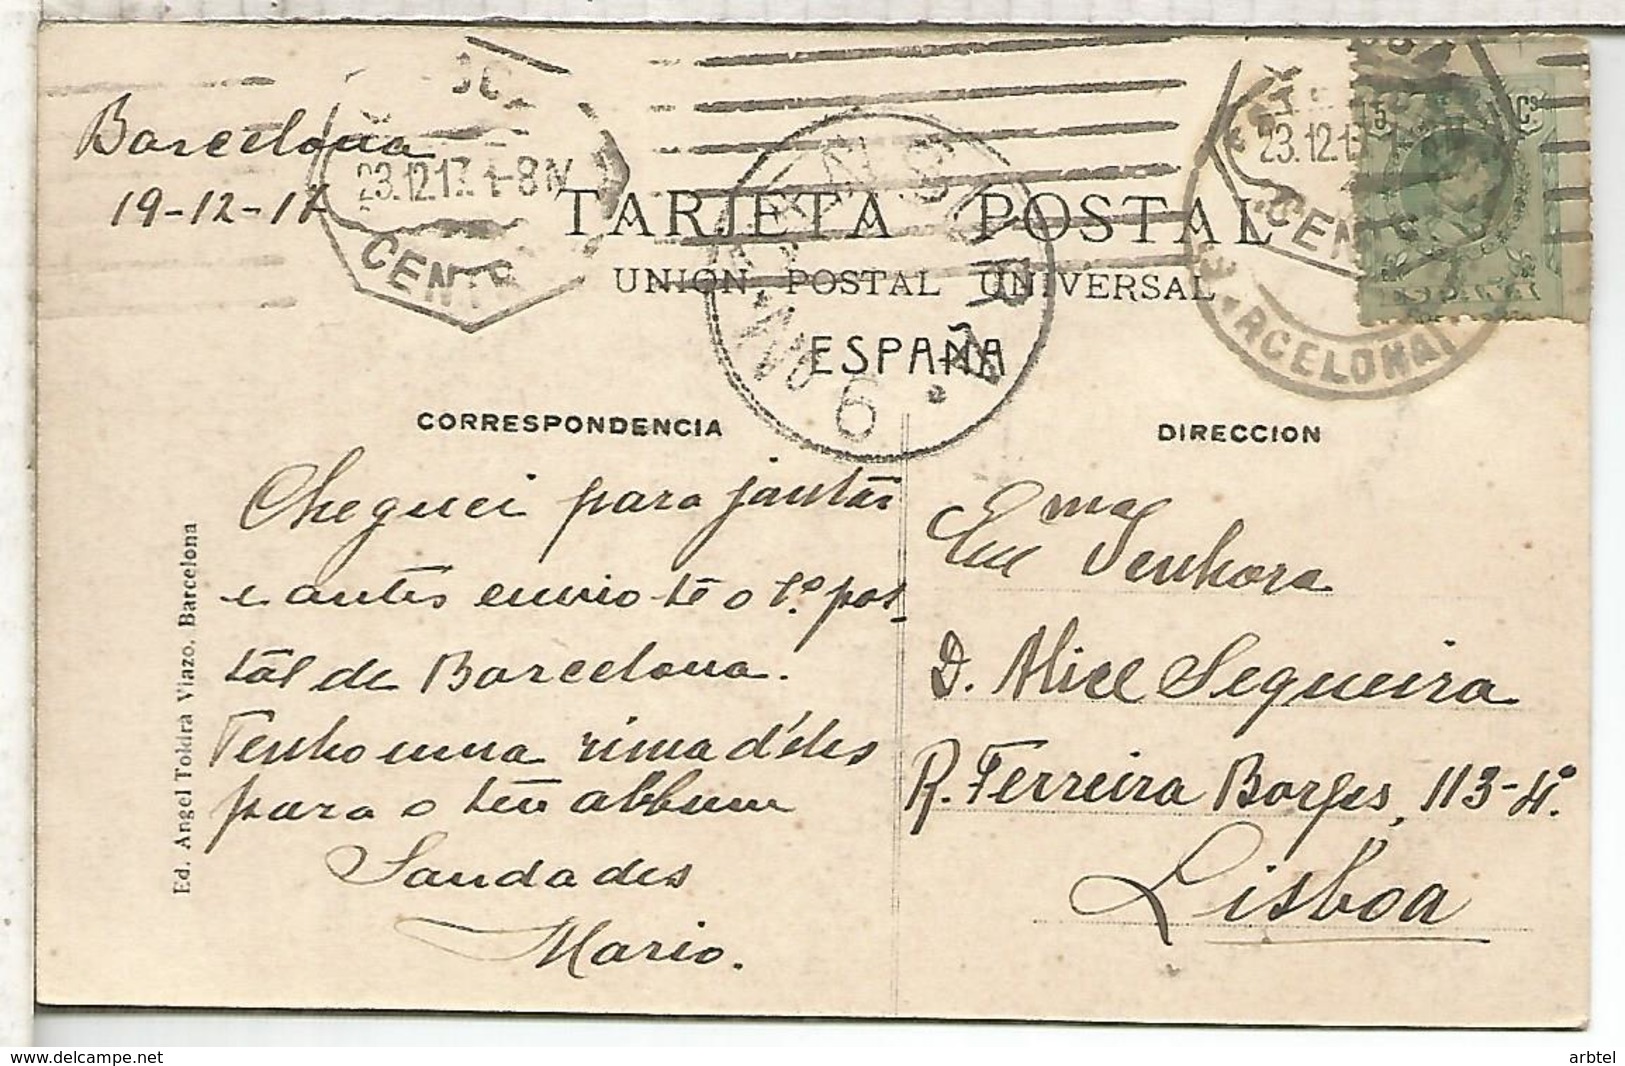 Barcelona
19-12-17
23.12.17. 1-8N
CENTR
TARJETA POSTAL
UNION POSTAL UNIVERSAL
ESPAÑA
6
23.12.17
CEN
BARCELONA
15 Cs
ESPAÑA
CORRESPONDENCIA
DIRECCION
Cheguei para jantar
e antes envio-te o 1.º pos-
tal de Barcelona.
Tenho uma rima d'eles
para o teu album
Saudades
Mario.
Exma Senhora
D. Alice Sequeira
R. Ferreira Borges, 113-4º.
Lisboa
Ed. Angel Toldrá Viazo. Barcelona
arbtel